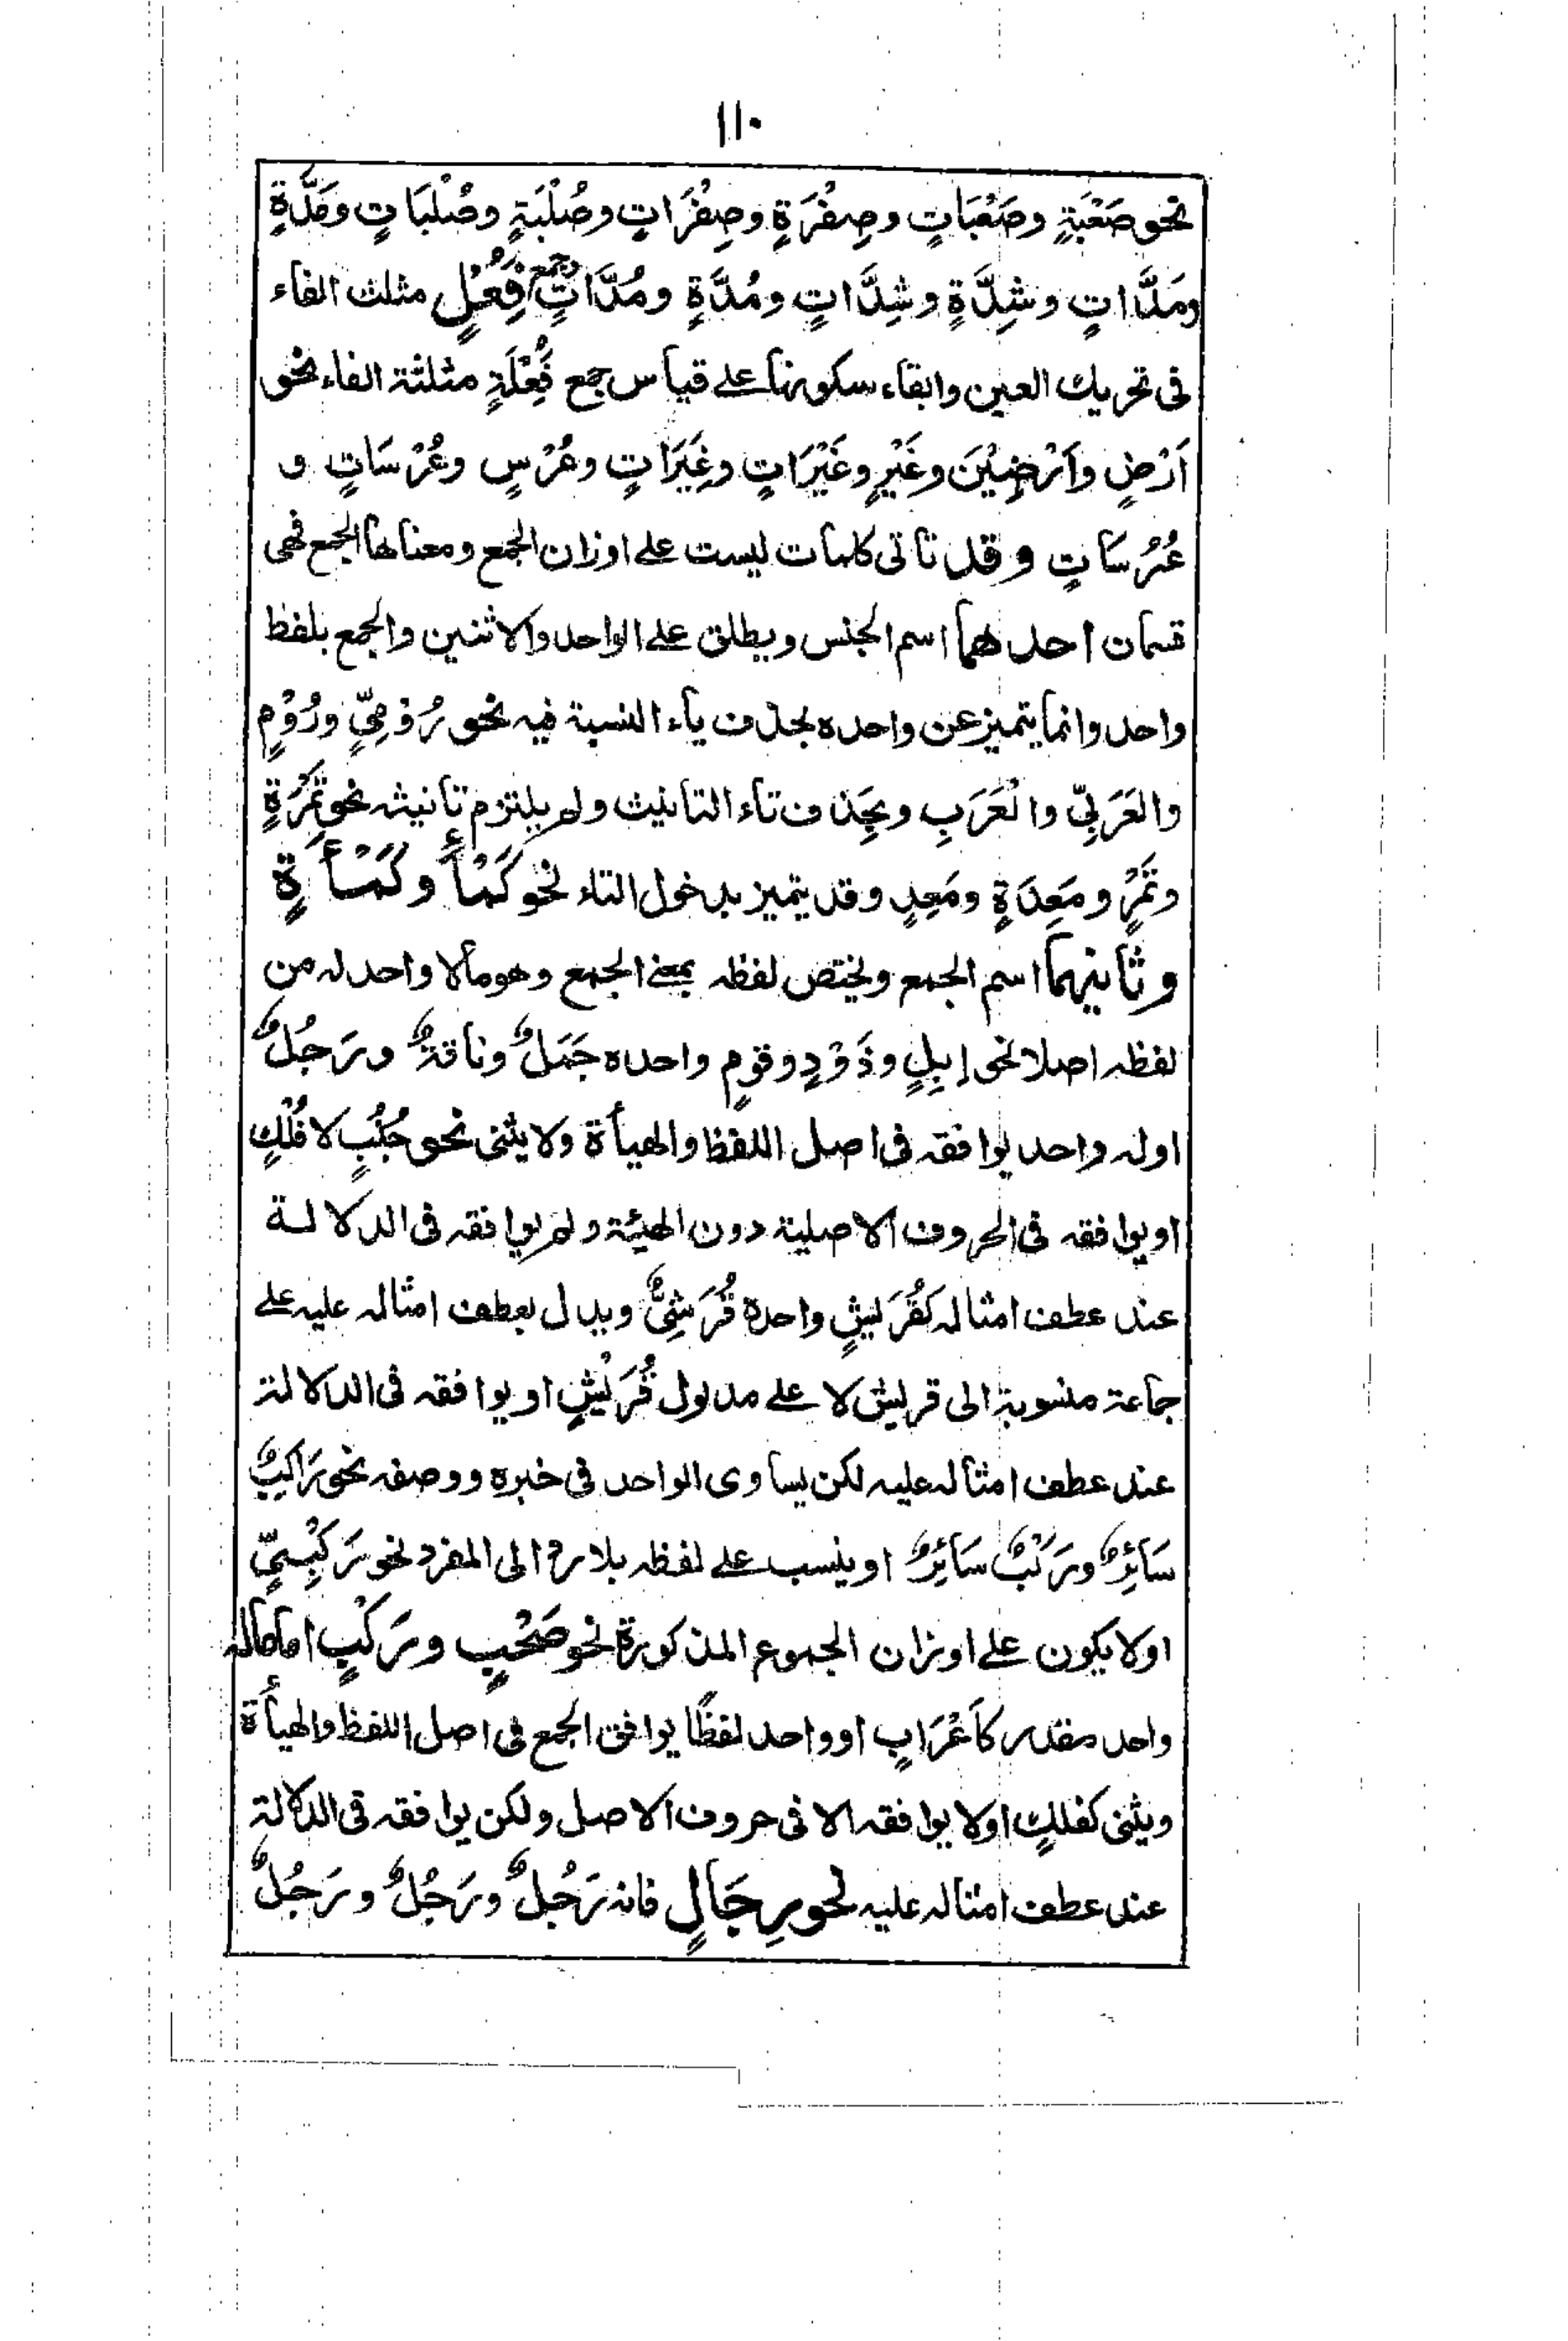 ١١٠
نحو صَعْبَةٍ وصَعْبَاتٍ وصِفْرَةٍ وصِفْرَاتٍ وصُلْبَةٍ وصُلْبَاتٍ ومَدَّةٍ
ومَدَّاتٍ وشِدَّةٍ وشِدَّاتٍ ومُدَّةٍ ومُدَّاتٍ وجمع فِعُلٍ مثلث الفاء
فى تحريك العين وابقاء سكونها على قياس جمع فِعْلَةٍ مثلثة الفاء نحو
اَرْضٍ واَرْضِيْنَ وغَيْرٍ وغَيْرَاتٍ وغِيَرَاتٍ وعُرْسٍ وعُرْسَاتٍ و
عُرُسَاتٍ وقد تاتى كلمات ليست على اوزان الجمع ومعناها الجمع فهى
قسمان احدهما اسم الجنس ويطلق على الواحد والاثنين والجمع بلفظ
واحد وانما يتميز عن واحده بحذف ياء النسبة فيه نحو رُوْمِيٍّ ورُوْمٍ
والعَرَبِيِّ والْعَرَبِ وبحذف تاء التانيث ولم يلتزم تانيثه نحو تَمْرَةٍ
وتَمْرٍ ومَعِدَةٍ ومَعِدٍ وقد يتميز بدخول التاء نحو كَمْأٍ وكَمْأَةٍ
وثانيهما اسم الجمع ويختص لفظه بمعنى الجمع وهو مالا واحد له من
لفظه اصلا نحو إِبِلٍ وذَوْدٍ وقومٍ واحده جَمَلٌ وناقةٌ ورَجُلٌ
اوله واحد يوافقه فى اصل اللفظ والهيأة ولا يثنى نحو جُنُبٍ لا فُلْكٍ
او يوافقه فى الحروف الاصلية دون الهيئة ولم يوافقه فى الدلالة
عند عطف امثاله كَقُرَيْشٍ واحدة قُرَشِيٌّ ويدل بعطف امثاله عليه على
جماعة منسوبة الى قريش لا على مدلول قُرَيْشٍ او يوافقه فى الدلالة
عند عطف امثاله عليه لكن يساوى الواحد فى خبره ووصفه نحو رَاكِبٌ
سَائِرٌ ورَكْبٌ سَائِرٌ او ينسب على لفظه بلا رد الى المفرد نحو رَكْبِيٍّ
اولا يكون على اوزان الجموع المذكورة نحو صَحْبٍ ورَكْبٍ اما ماله
واحد مقدر كاَعْرَابٍ او واحد لفظًا يوافق الجمع فى اصل اللفظ والهيأة
ويثنى كفلكٍ اولا يوافقه الا فى حروف الاصل ولكن يوافقه فى الدلالة
عند عطف امثاله عليه نحو رِجَالٍ فانه رَجُلٌ ورَجُلٌ ورَجُلٌ